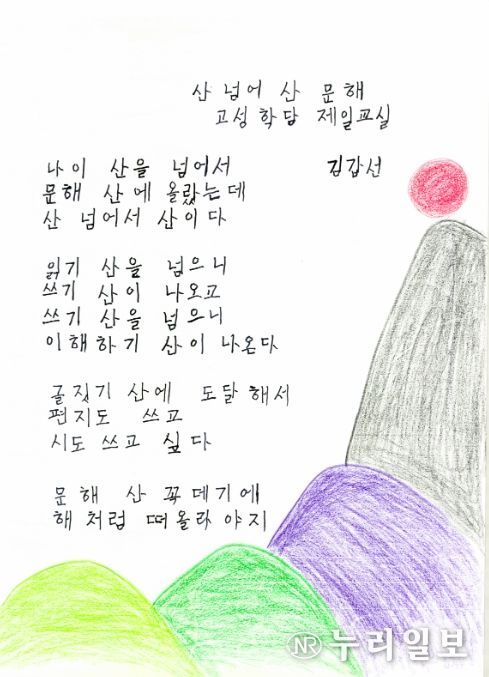 산 넘어 산 문해
고성학당 제일교실
김갑선
나이 산을 넘어서
문해 산에 올랐는데
산 넘어서 산이다
읽기 산을 넘으니
쓰기 산이 나오고
쓰기 산을 넘으니
이해하기 산이 나온다
글짓기 산에 도달해서
편지도 쓰고
시도 쓰고 싶다
문해 산 꼭데기에
해처럼 떠올라야지
NR 누리일보